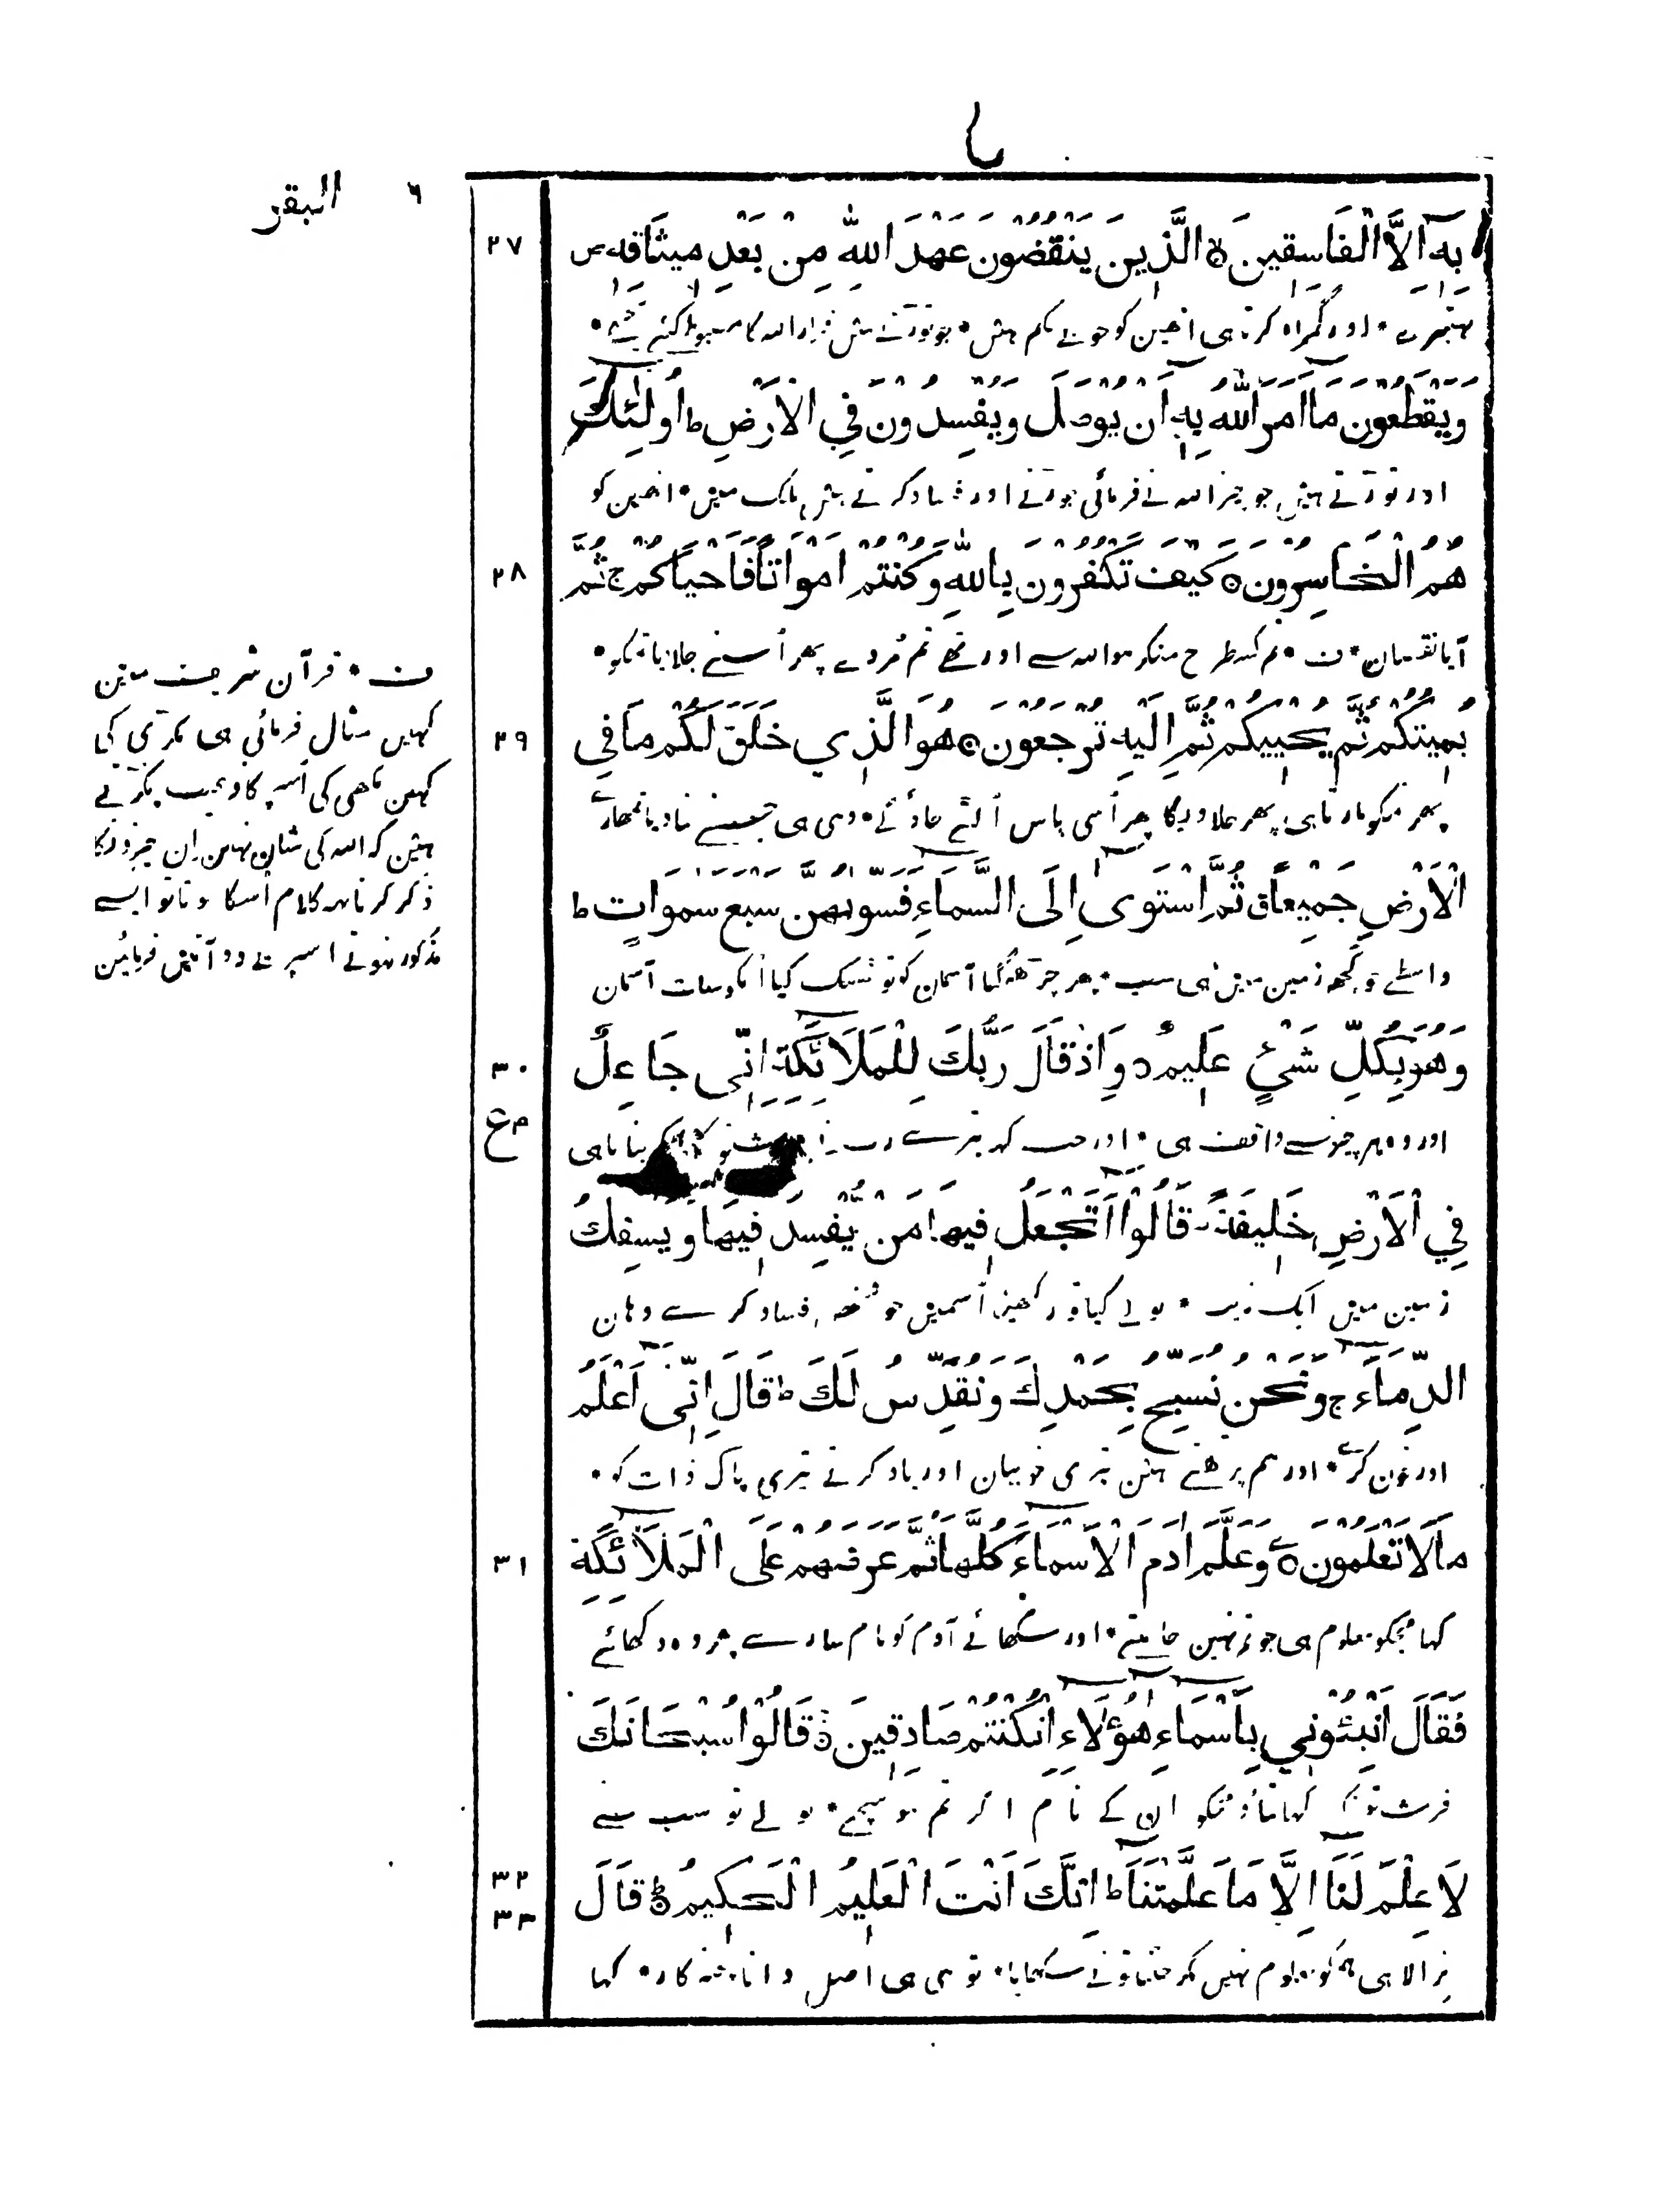 البقر ٦
٢٧ بِهٖٓ اِلَّا الْفَاسِقِينَ ۙ الَّذِينَ يَنْقُضُونَ عَهْدَ اللّٰهِ مِنْ بَعْدِ مِيثَاقِهٖ ص
بہتیرے • اور گمراہ کرتا ہی انھین کو جو بے حکم ہیں • جو توڑتے ہیں قرار اللہ کا مضبوط کئے پیچھے •
وَيَقْطَعُونَ مَا اَمَرَ اللّٰهُ بِهٖ اَنْ يُوصَلَ وَيُفْسِدُونَ فِي الْاَرْضِ ط اُولٰئِكَ
اور توڑتے ہیں جو چیز اللہ نے فرمائی جوڑنے اور فساد کرتے ہیں ملک میں • انھین کو
٢٨ هُمُ الْخَاسِرُونَ ۝ كَيْفَ تَكْفُرُونَ بِاللّٰهِ وَكُنْتُمْ اَمْوَاتًا فَاَحْيَاكُمْ ج ثُمَّ
آیا نقصان • ف • تم کس طرح منکر ہو اللہ سے اور تھے تم مُردے پھر اُسنے جلایا تمکو •
٢٩ يُمِيتُكُمْ ثُمَّ يُحْيِيكُمْ ثُمَّ اِلَيْهِ تُرْجَعُونَ ۝ هُوَ الَّذِي خَلَقَ لَكُمْ مَا فِي
پھر تمکو مارتا ہی پھر جلاویگا پھر اُسی پاس اُلٹے جاؤگے • وہی ہی جسنے بنادیا تمھارے
الْاَرْضِ جَمِيْعًا ق ثُمَّ اسْتَوٰى اِلَى السَّمَاءِ فَسَوّٰىهُنَّ سَبْعَ سَمٰوَاتٍ ط
واسطے جو کچھ زمین میں ہی سب • پھر چڑھ گیا آسمان کو تو ٹھیک کیا اُنکو سات آسمان
٣٠ وَهُوَ بِكُلِّ شَيْءٍ عَلِيمٌ ۝ وَاِذْ قَالَ رَبُّكَ لِلْمَلَائِكَةِ اِنِّي جَاعِلٌ
ع
اور وہ ہر چیز سے واقف ہی • اور جب کہا تیرے رب نے بنانا ہی
فِي الْاَرْضِ خَلِيفَةً ط قَالُوْا اَتَجْعَلُ فِيهَا مَنْ يُفْسِدُ فِيهَا وَيَسْفِكُ
زمین میں ایک نایب • بولے کیا تو رکھیگا اُسمیں جو شخص فساد کرے وہان
الدِّمَاءَ ج وَنَحْنُ نُسَبِّحُ بِحَمْدِكَ وَنُقَدِّسُ لَكَ ط قَالَ اِنِّي اَعْلَمُ
اور خون کرے • اور ہم پڑھتے ہین تیری خوبیان اور یاد کرتے تیری پاک ذات کو •
٣١ مَا لَا تَعْلَمُونَ ۝ وَعَلَّمَ اٰدَمَ الْاَسْمَاءَ كُلَّهَا ثُمَّ عَرَضَهُمْ عَلَى الْمَلَائِكَةِ
کہا مجکو معلوم ہی جو تم نہین جانتے • اور سکھائے آدم کو نام سارے پھر وہ دکھائے
فَقَالَ اَنْبِئُوْنِي بِاَسْمَاءِ هٰؤُلَاءِ اِنْ كُنْتُمْ صَادِقِينَ ۝ قَالُوْا سُبْحَانَكَ
فرشتونکو کہا بتاؤ مجکو ان کے نام اگر تم ہو سچے • بولے تو سب سے
٣٢ ٣٣ لَا عِلْمَ لَنَا اِلَّا مَا عَلَّمْتَنَا ط اِنَّكَ اَنْتَ الْعَلِيمُ الْحَكِيمُ ۝ قَالَ
نرالا ہی ہمکو معلوم نہیں مگر جتنا تونے سکھایا • تو ہی ہی اصل دانا پختہ کار • کہا
ف • قرآن شریف مین
کہیں مثال فرمائی ہی مکڑی کی
کہین مکھی کی اُسپر کافر عیب پکڑتے
ہین کہ اللہ کی شان نہین ان چیزونکا
ذکر کرنا یہہ کلام اُسکا ہوتا تو ایسے
مذکور نہوتے اسپر یے دو آیتیں فرمائین